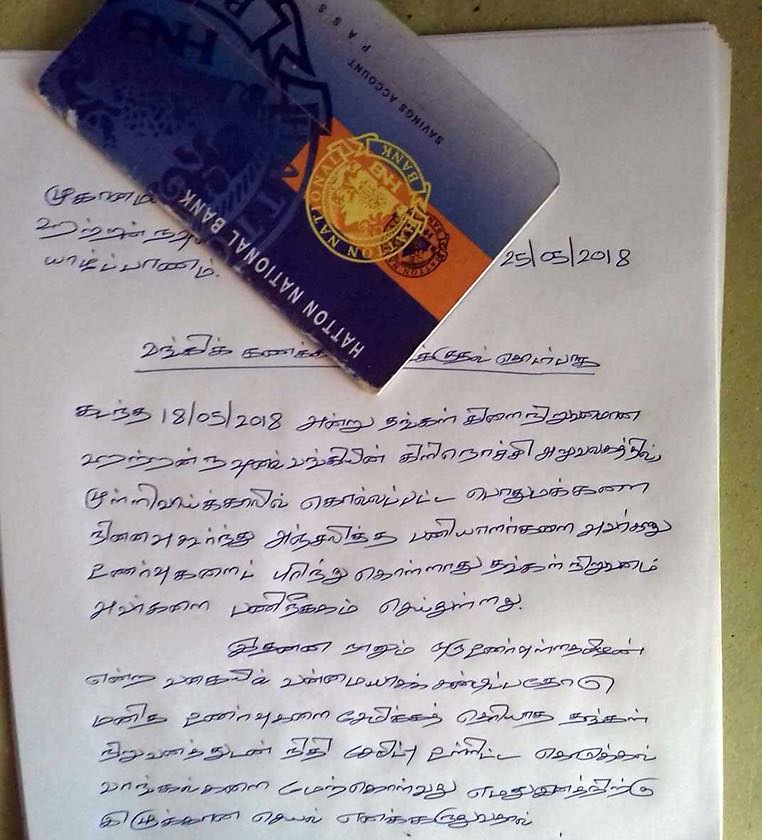 PASS
SAVINGS ACCOUNT
HNB
HATTON NATIONAL BANK
HATTON NATIONAL BANK
முகாமை
ஹற்றன் நஷ
யாழ்ப்பாணம்.
25/05/2018
வங்கிக் கணக் தொடர்பாக
கடந்த 18/05/2018 அன்று தங்கள் கிளை நிறுவனமான
ஹற்றன் நஷனல் வங்கியின் கிளிநொச்சி அலுவலகத்தில்,
முள்ளிவாய்க்காலில் கொல்லப்பட்ட பொதுமக்களை
நினைவுகூர்ந்து அஞ்சலித்த பணியாளர்களை அவர்களது
உணர்வுகளைப் புரிந்து கொள்ளாது தங்கள் நிறுவனம்
அவர்களை பணிநீக்கம் செய்துள்ளது.
இதனை நானும் ஒரு உணர்வுள்ள
என்ற வகையில் வன்மையாகக் கண்டிப்பதோடு
மனித உணர்வுகளை தெரியாத தங்கள்
நிறுவனத்துடன் நிதி சேமிப்பு உள்ளிட்ட கொடுக்கல்
வாங்கல்களை மேற்கொள்வது எமது இனத்திற்கு
இழுக்கான செயல் எனக் கருதுவதால்